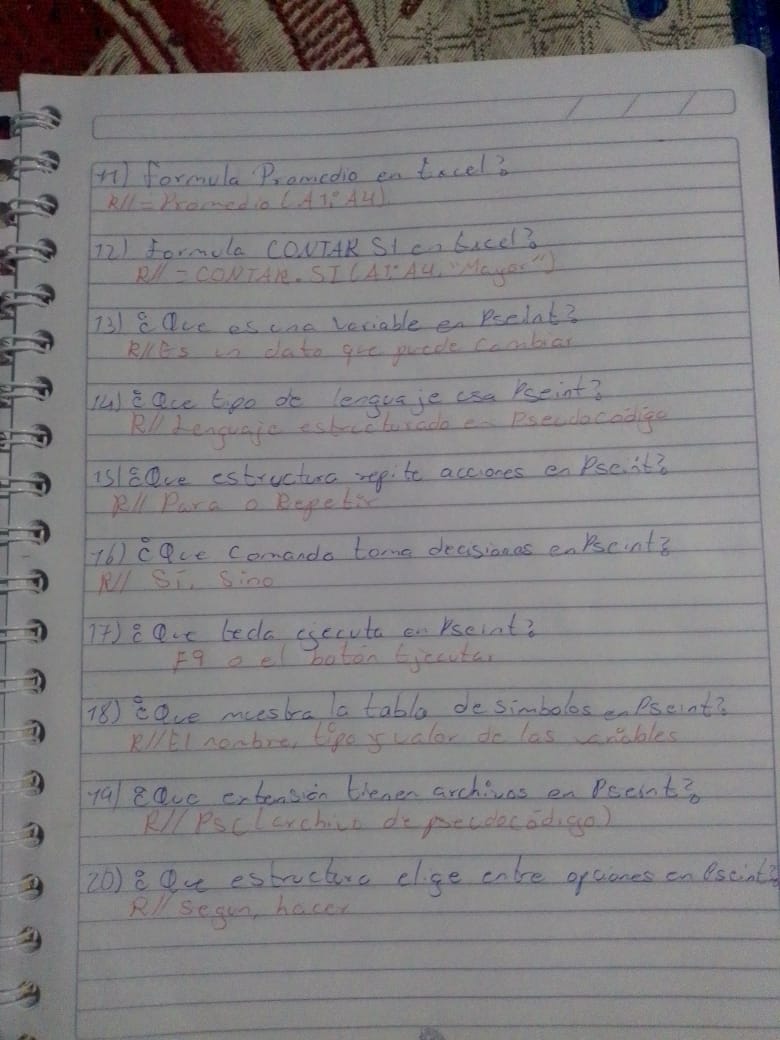 11) formula Promedio en Excel?
R// = Promedio (A1:A4)
12) formula CONTAR SI en Excel?
R// = CONTAR.SI (A1:A4, "Mayor")
13) ¿Que es una variable en PseInt?
R// Es un dato que puede cambiar
14) ¿Que tipo de lenguaje usa Pseint?
R// Lenguaje estructurado en Pseudocódigo
15) ¿Que estructura repite acciones en Pseint?
R// Para o Repetir
16) ¿Que comando toma decisiones en Pseint?
R// Si, Sino
17) ¿Que tecla ejecuta en Pseint?
F9 o el botón Ejecutar
18) ¿Que muestra la tabla de simbolos en Pseint?
R// El nombre, tipo y valor de las variables
19) ¿Que extensión tienen archivos en Pseint?
R// Psc (archivo de pseudocódigo)
20) ¿Que estructura elige entre opciones en Pseint?
R// segun, hacer